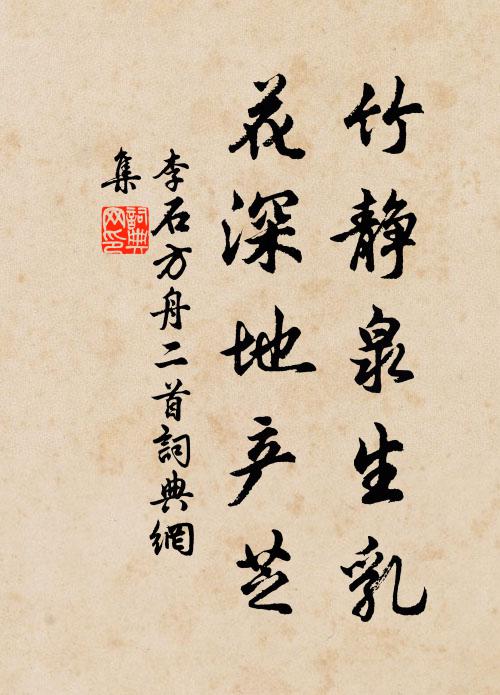 竹静泉生乳
花深地产芝
李石方舟二首詞典網
集
詞典网印